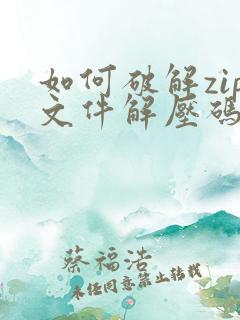 如何破解zip
文件解壓碼
蔡福浩
未经同意禁止转载